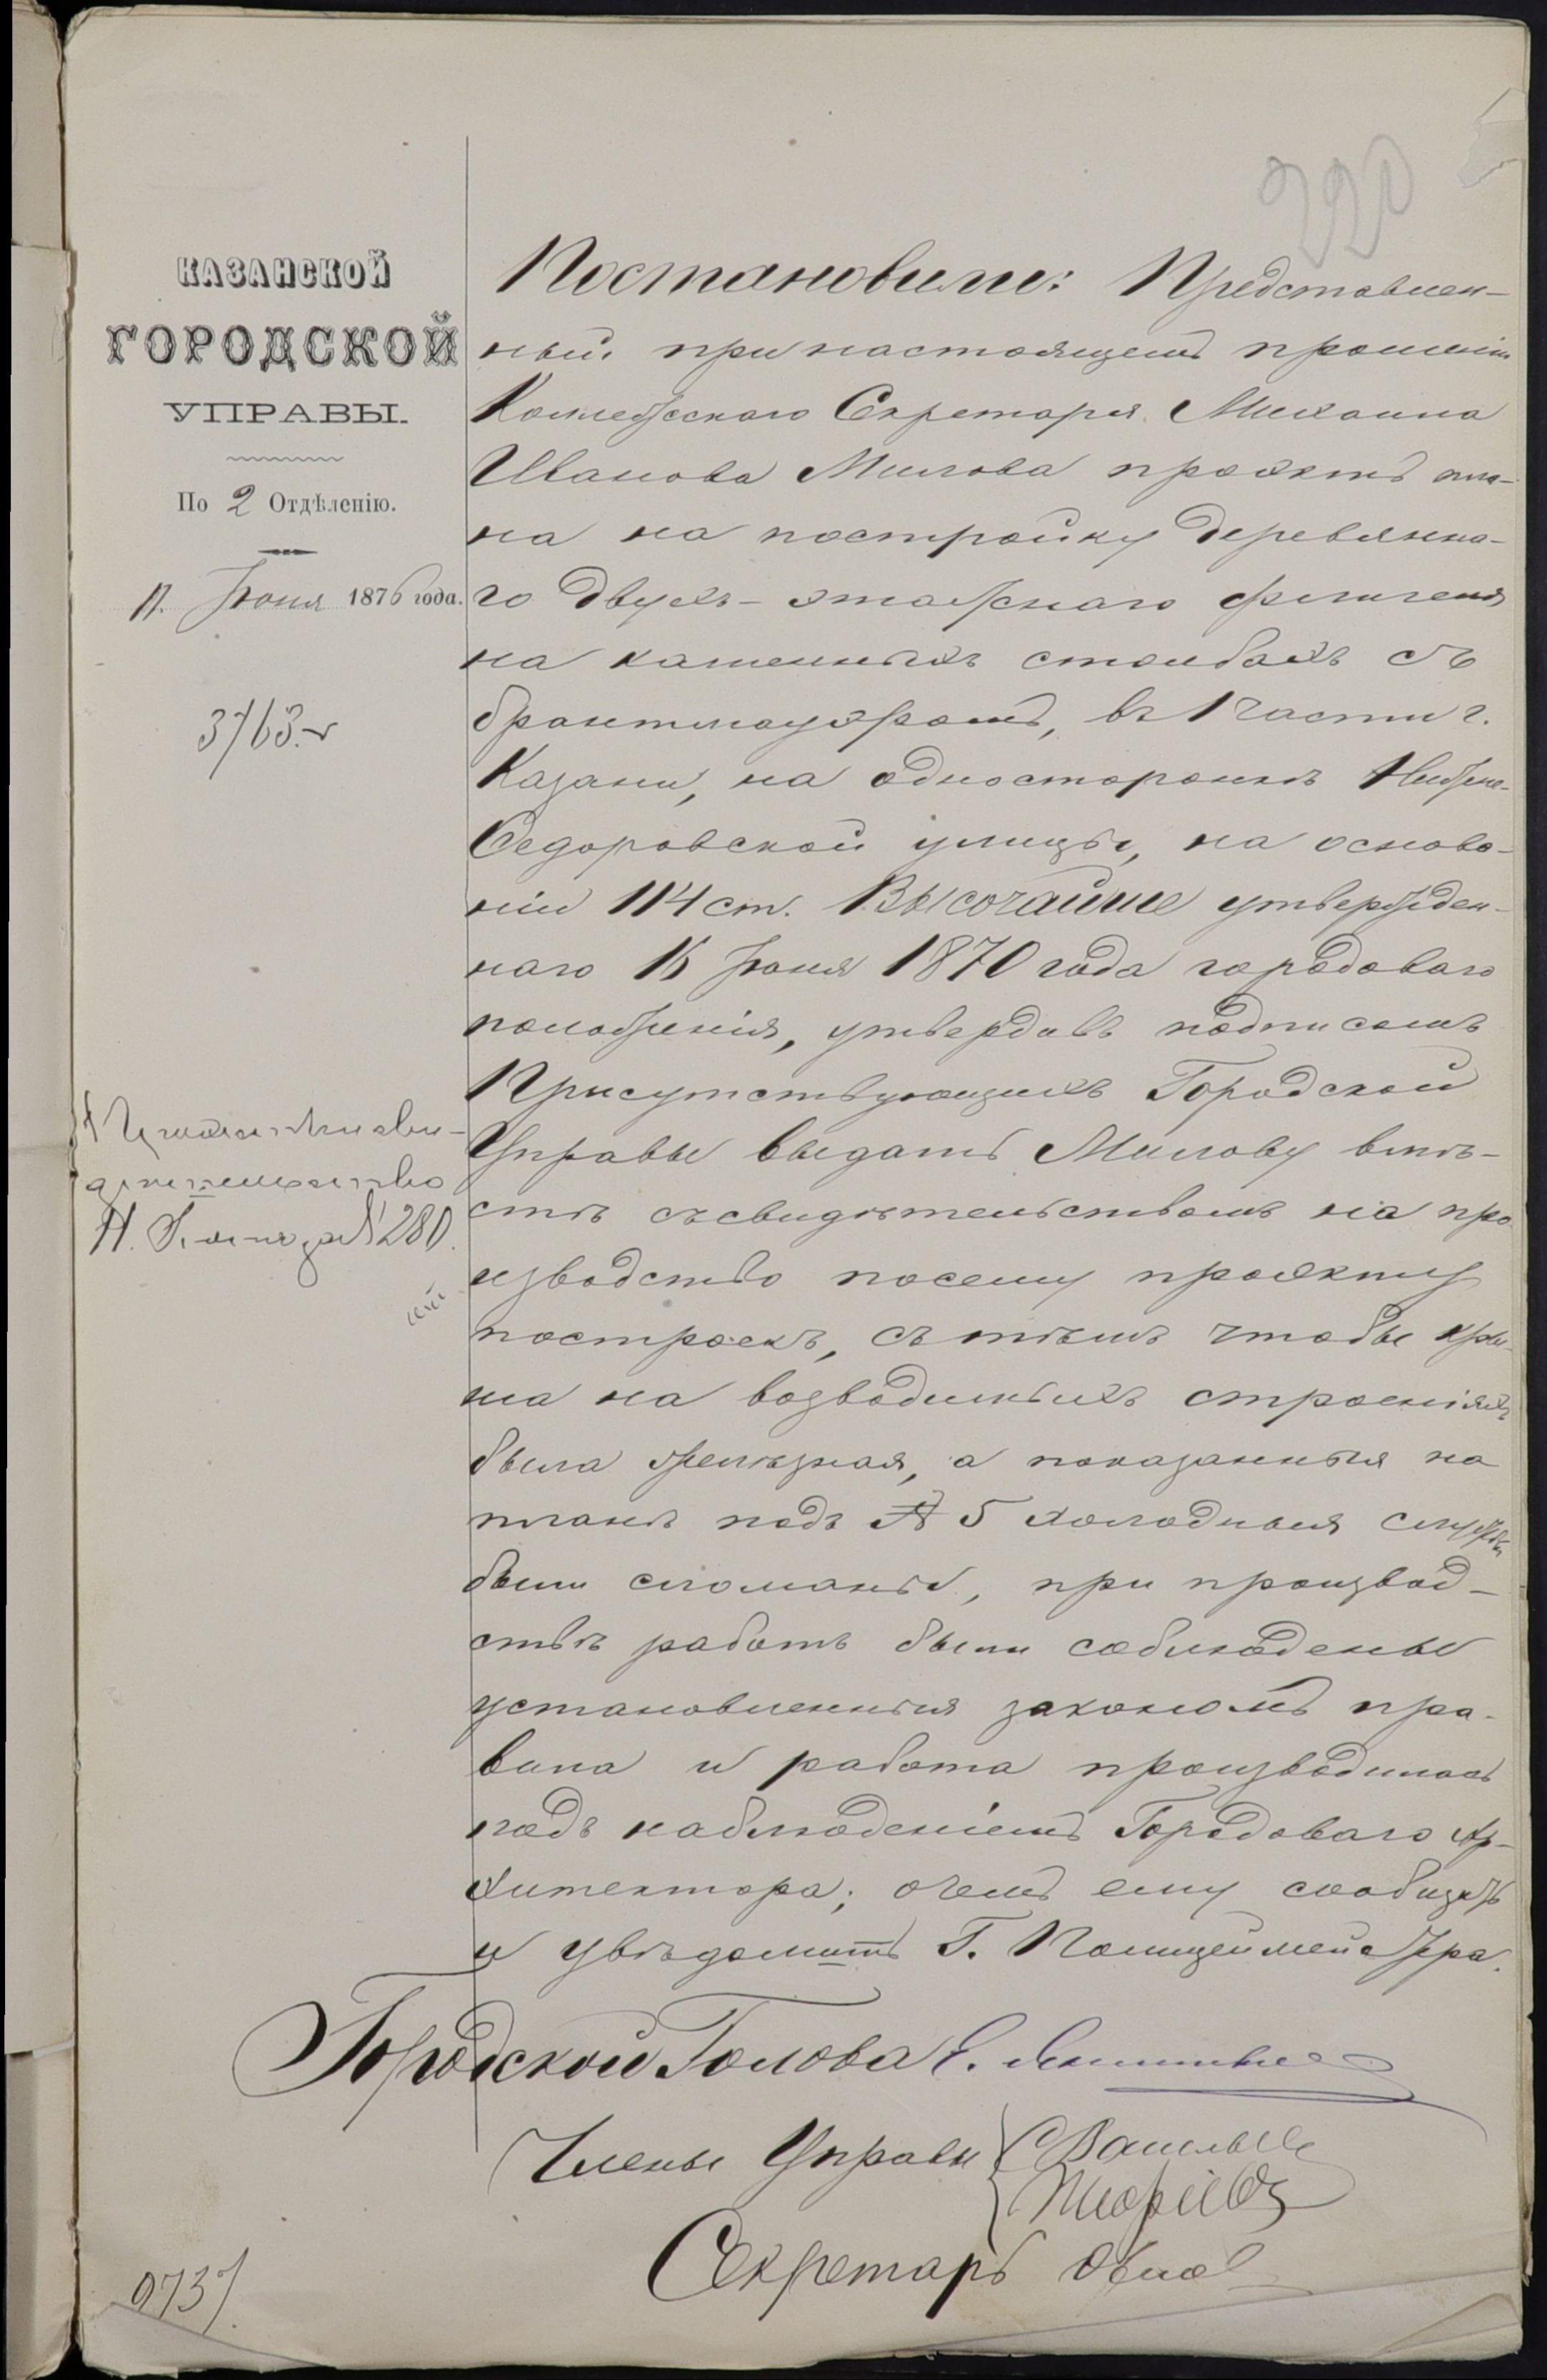 220
КАЗАНСКОЙ
ГОРОДСКОЙ
УПРАВЫ.
По 2 Отдѣленію.
11. Іюня 1876 года.
3763.
Постановили: Представлен-
ный при настоящемъ прошеніи
Коллежскаго Секретаря Михаила
Иванова Милова проэктъ пла-
на на постройку деревянна-
го двухъ-этажнаго флигеля
на каменныхъ столбахъ съ
брантмауэромъ, въ 1 части г.
Казани, на односторонкѣ Нижне-
Ѳедоровской улицы, на основа-
ніи 114 ст. Высочайше утвержден-
наго 16 Іюня 1870 года городоваго
положенія, утвердивъ подписомъ
Присутствующихъ Городской
Управы выдать Милову вмѣ-
стѣ съ свидѣтельствомъ на про
изводство посему проэкту
построекъ, съ тѣмъ чтобы кры-
ша на возводимыхъ строеніяхъ
была желѣзная, а показанныя на
планѣ подъ № 5 холодныя службы
были сломаны, при производ-
ствѣ работъ были соблюдены
установленныя закономъ пра-
вила и работа производилась
подъ наблюденіемъ Городоваго Ар-
хитектора; о чемъ ему сообщить
и увѣдомить Г. Полицеймейстра.
№ 280.
Городской Голова
Члены Управы
Секретарь
9737